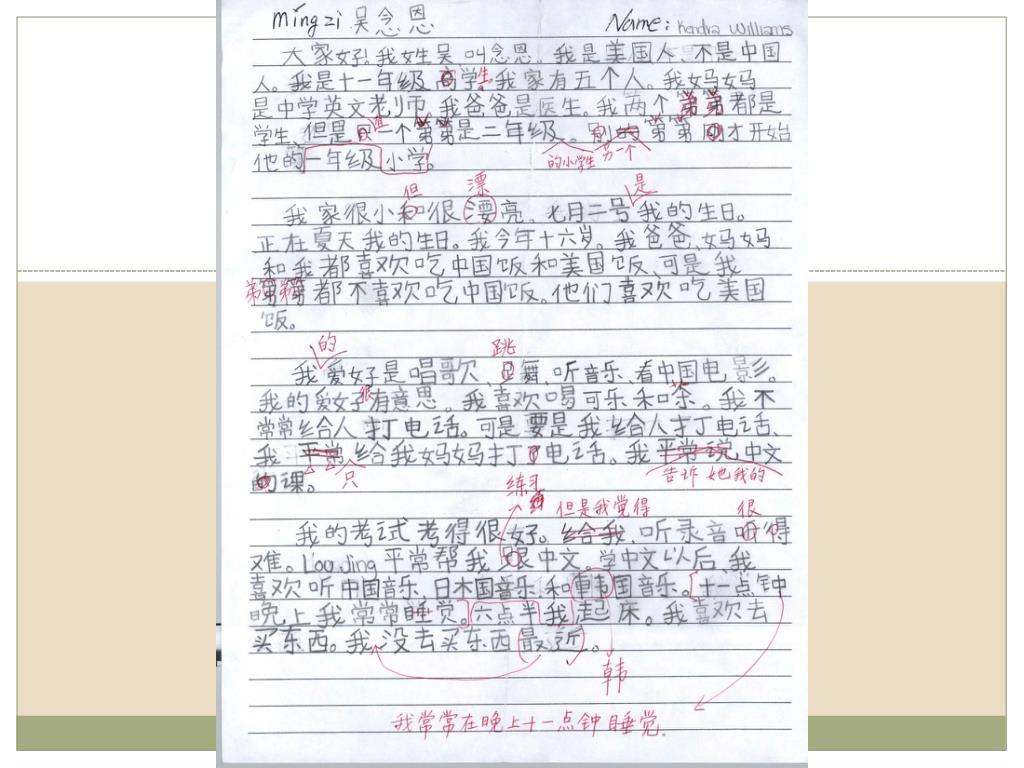 mingzi 吴念恩 Name: Kendra Williams
大家好!我姓吴叫念恩。我是美国人、不是中国
人。我是十一年级高学生。我家有五个人。我妈妈
是中学英文老师。我爸爸是医生。我两个弟弟都是
学生、但是一个弟弟是二年级。别的弟弟刚才开始
的小学生 另一个
他的一年级小学。
但 漂 是
我家很小和很漂亮。七月二号我的生日。
正在夏天我的生日。我今年十六岁。我爸爸、妈妈
和我都喜欢吃中国饭和美国饭、可是我
弟弟都不喜欢吃中国饭。他们喜欢吃美国
饭。
的 跳
我爱好是唱歌、舞、听音乐、看中国电影。
我的爱好很有意思。我喜欢喝可乐和茶。我不
常常给人打电话。可是要是我给人打电话、
我平常给我妈妈打电话。我平常说中文
只 告诉她我的
的课。
练习 但是我觉得 很
我的考试考得很好。给我、听录音听得
难。LouJing平常帮我跟中文。学中文以后、我
喜欢听中国音乐、日本国音乐和韩国音乐。十一点钟
晚上我常常睡觉。六点半我起床。我喜欢去
买东西。我没去买东西最近。
韩
我常常在晚上十一点钟睡觉。